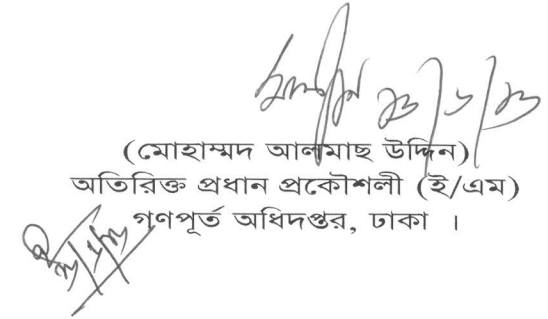 (মোহাম্মদ আলমাছ উদ্দিন)
অতিরিক্ত প্রধান প্রকৌশলী (ই/এম)
গণপূর্ত অধিদপ্তর, ঢাকা ।